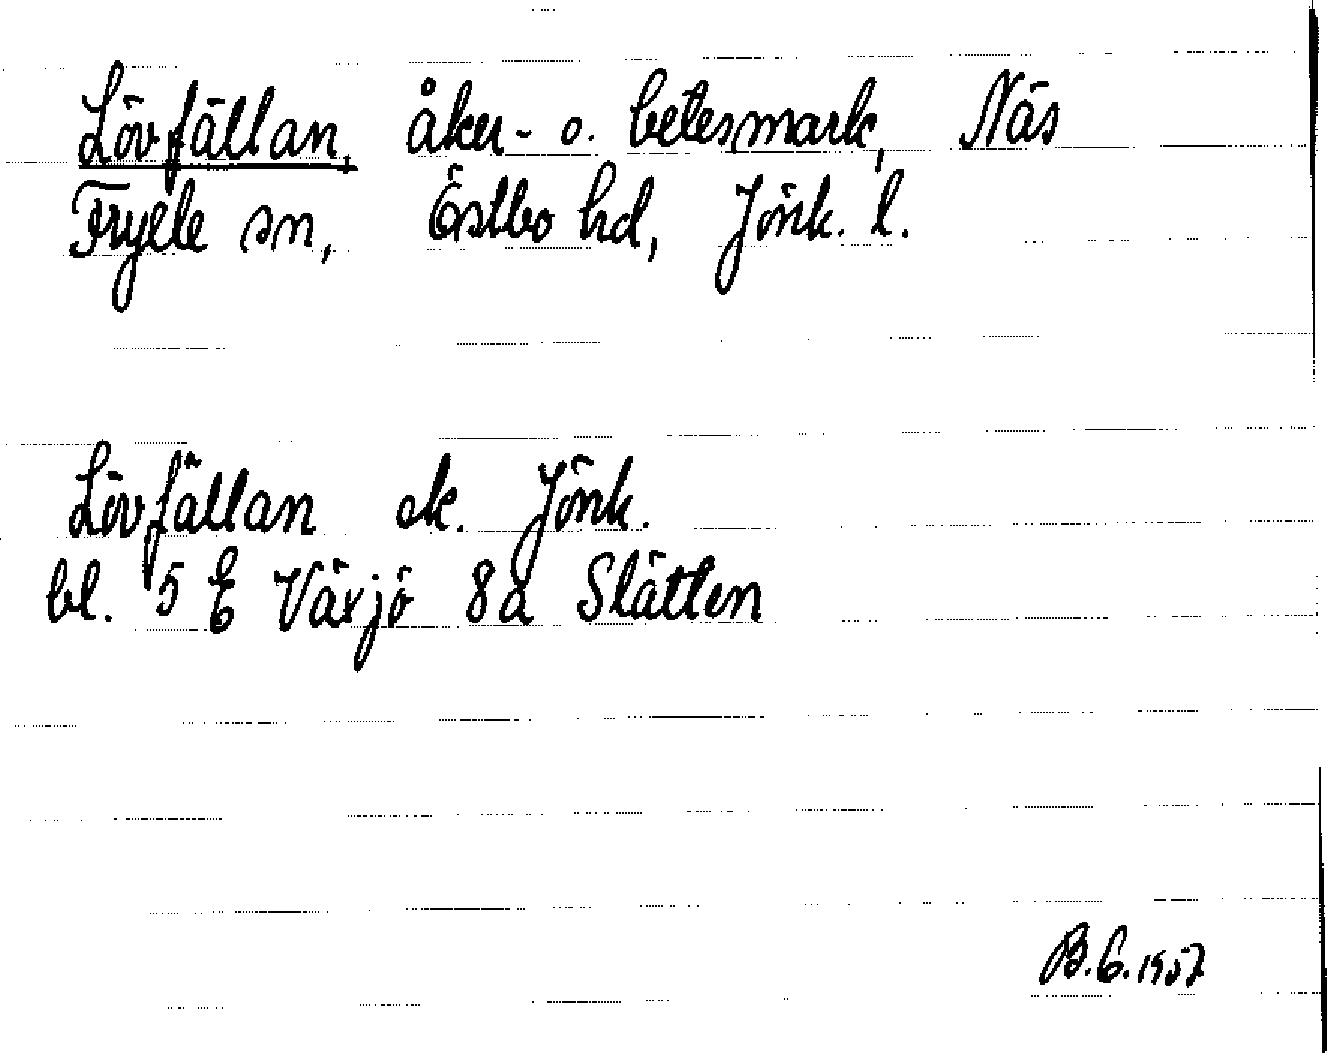 Lövfällan, åker- o. betesmark, Näs
Fryele sn, Östbo hd, Jönk. l.
Lövfällan ek. Jönk.
bl. 5 E Växjö 8a Slätten
B.G. 1957